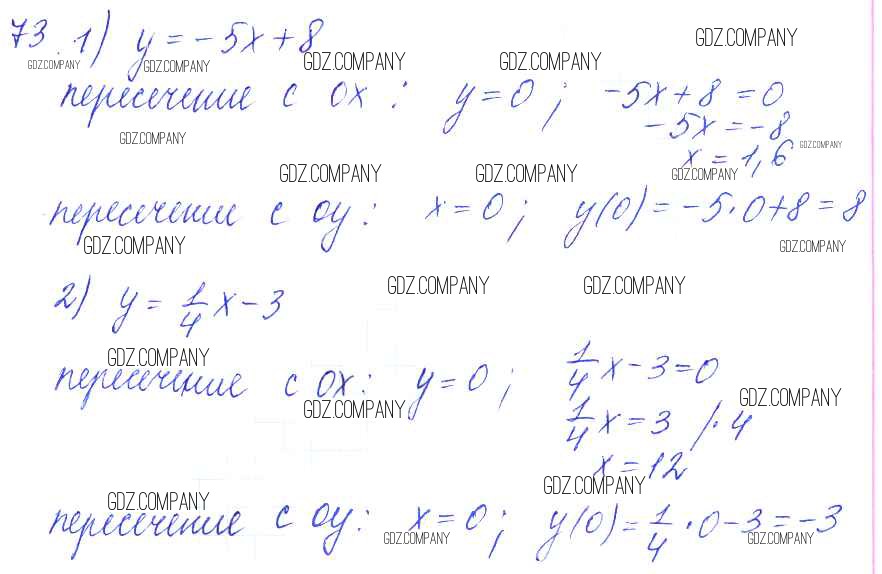 73. 1) y = -5x + 8
GDZ.COMPANY
GDZ.COMPANY GDZ.COMPANY GDZ.COMPANY GDZ.COMPANY
пересечение с ox: y = 0; -5x + 8 = 0
-5x = -8
GDZ.COMPANY GDZ.COMPANY
x = 1,6
GDZ.COMPANY GDZ.COMPANY GDZ.COMPANY
пересечение с oy: x = 0; y(0) = -5·0+8 = 8
GDZ.COMPANY GDZ.COMPANY
2) y = 1/4 x - 3
GDZ.COMPANY GDZ.COMPANY
GDZ.COMPANY
пересечение с ox: y = 0; 1/4 x - 3 = 0
GDZ.COMPANY GDZ.COMPANY
1/4 x = 3 /·4
x = 12
GDZ.COMPANY
GDZ.COMPANY
пересечение с oy: x = 0; y(0) = 1/4 · 0 - 3 = -3
GDZ.COMPANY GDZ.COMPANY